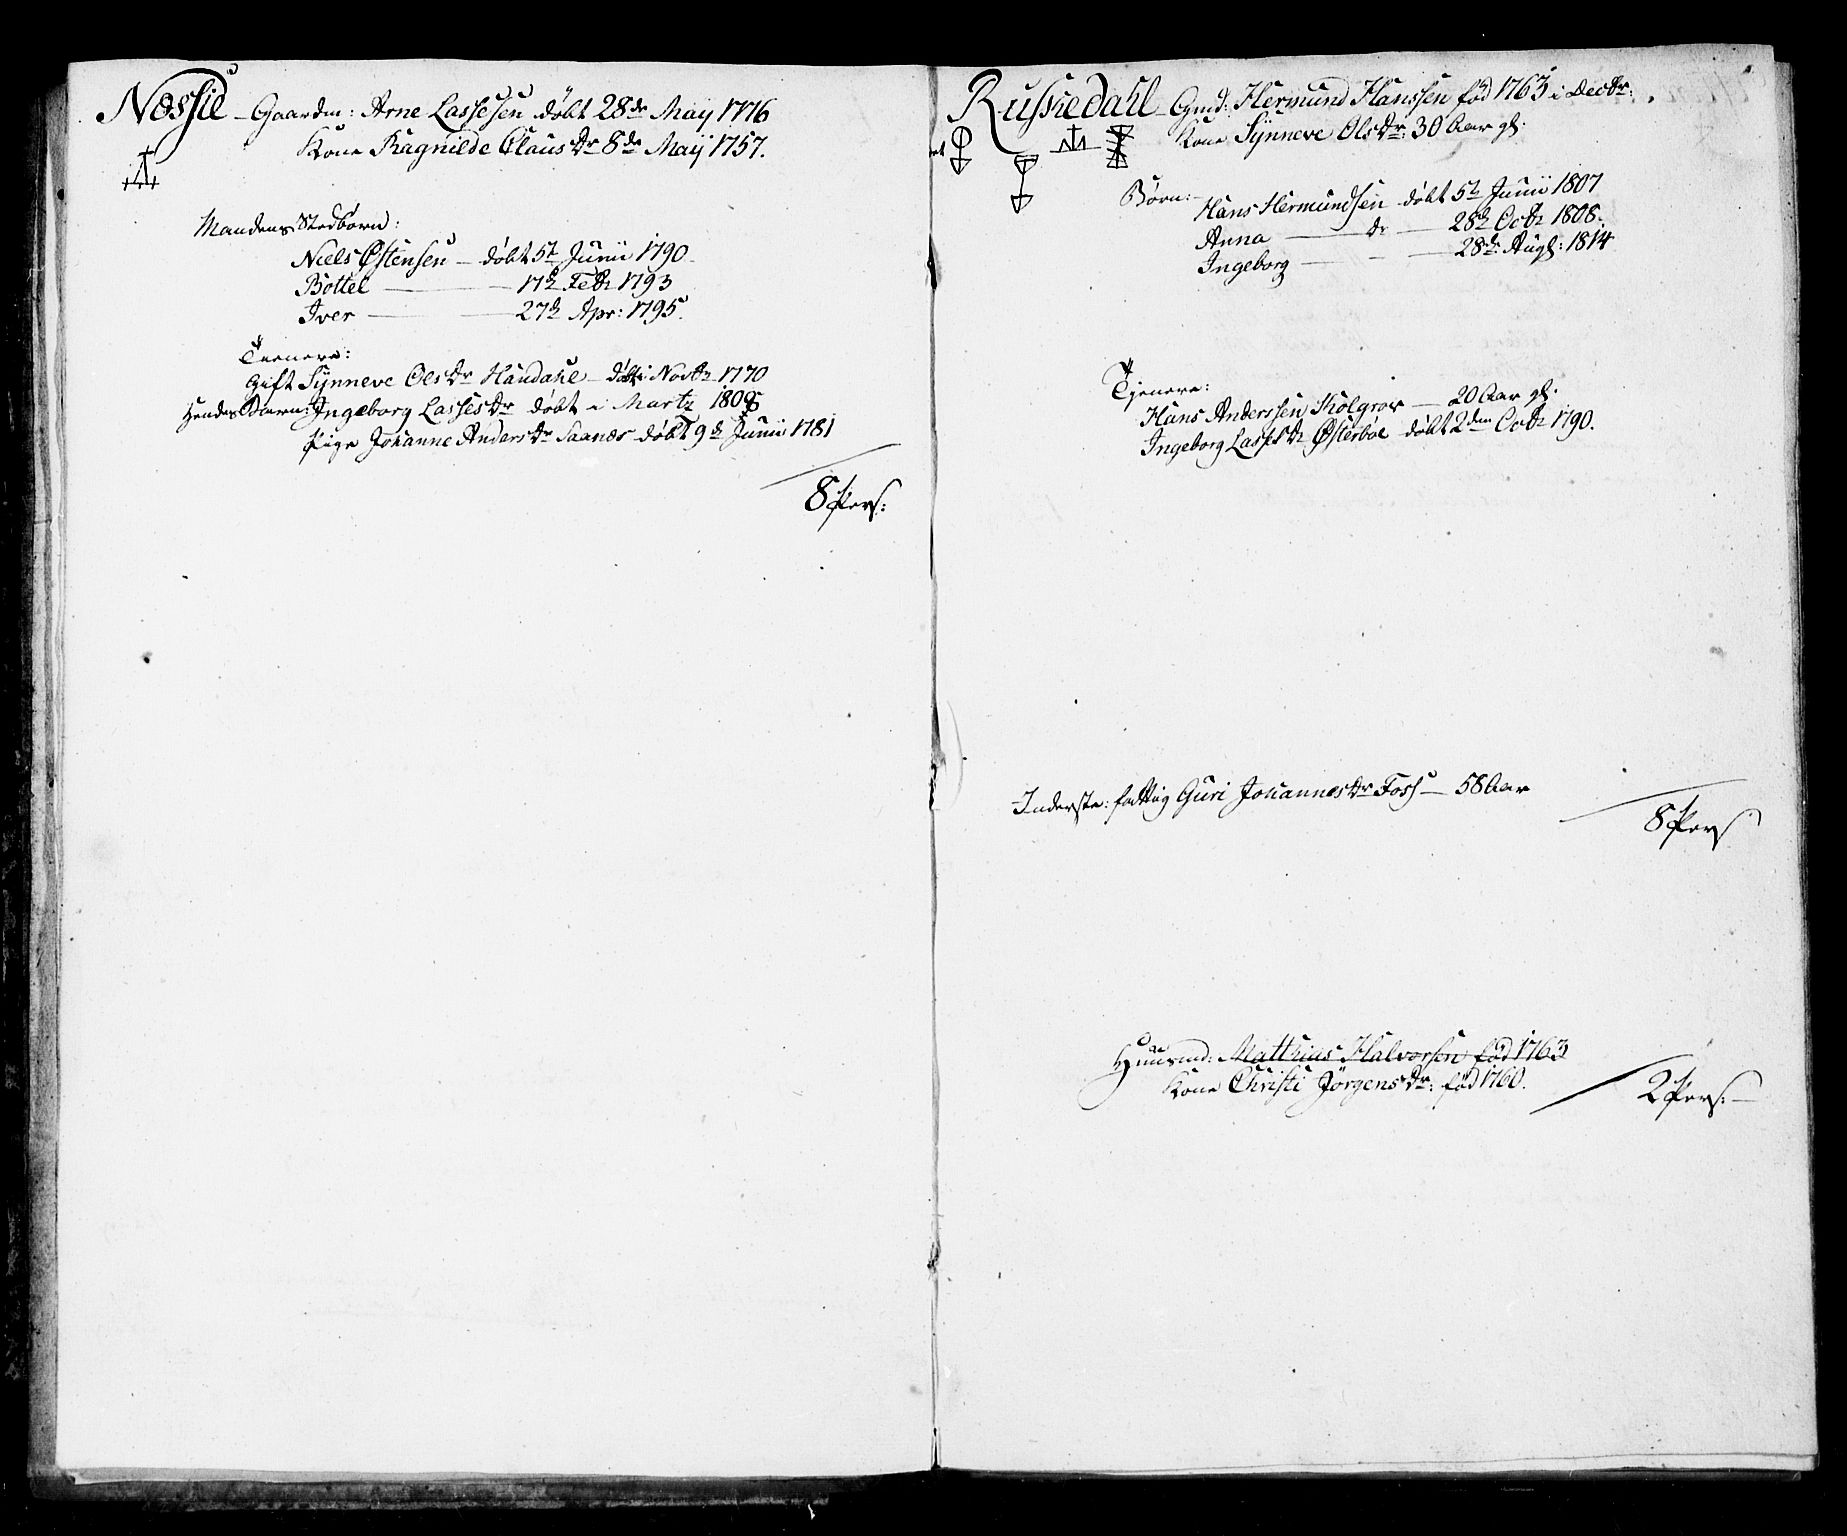 Nessie – Gaardm: Arne Lassesen døbt 28de Maij 1776
Kone Ragnilde Clausdr 8de Maij 1757.
Mandens Stedbørn:
Niels Østensen – døbt 5t Junii 1790
Bottel — 17d Febr 1793
Iver — 27d Apr: 1795.
Tienere:
gift Synneve Olsdr Haudahl – døbt i Novbr 1770
Hendes Barn: Ingeborg Lassesdr døbt i Martz 1808
Pige Johanne Andersdr Saanes døbt 9d Junii 1781
8 Pers:
Russiedahl – Gmd: Hermund Hanssen fød 1763 i Decbr:
Kone Synneve Olsdr: 30 Aar gl:
Børn:
Hans Hermundsen døbt 5t Junii 1807
Anna — dr — 28d Octbr 1808.
Ingeborg — 28de Augs: 1814
Tjenere:
Hans Anderssen Kolgrov — 20 Aar gl:
Ingeborg Lassesdr Østerboe døbt 2den Octbr 1790.
Inderste: fattig Guri Johannesdr Foss — 58 Aar
8 Pers
Huusmd: Matthias Halvorsen fød 1763
Kone Christi Jørgensdr: fød 1760.
2 Pers: —